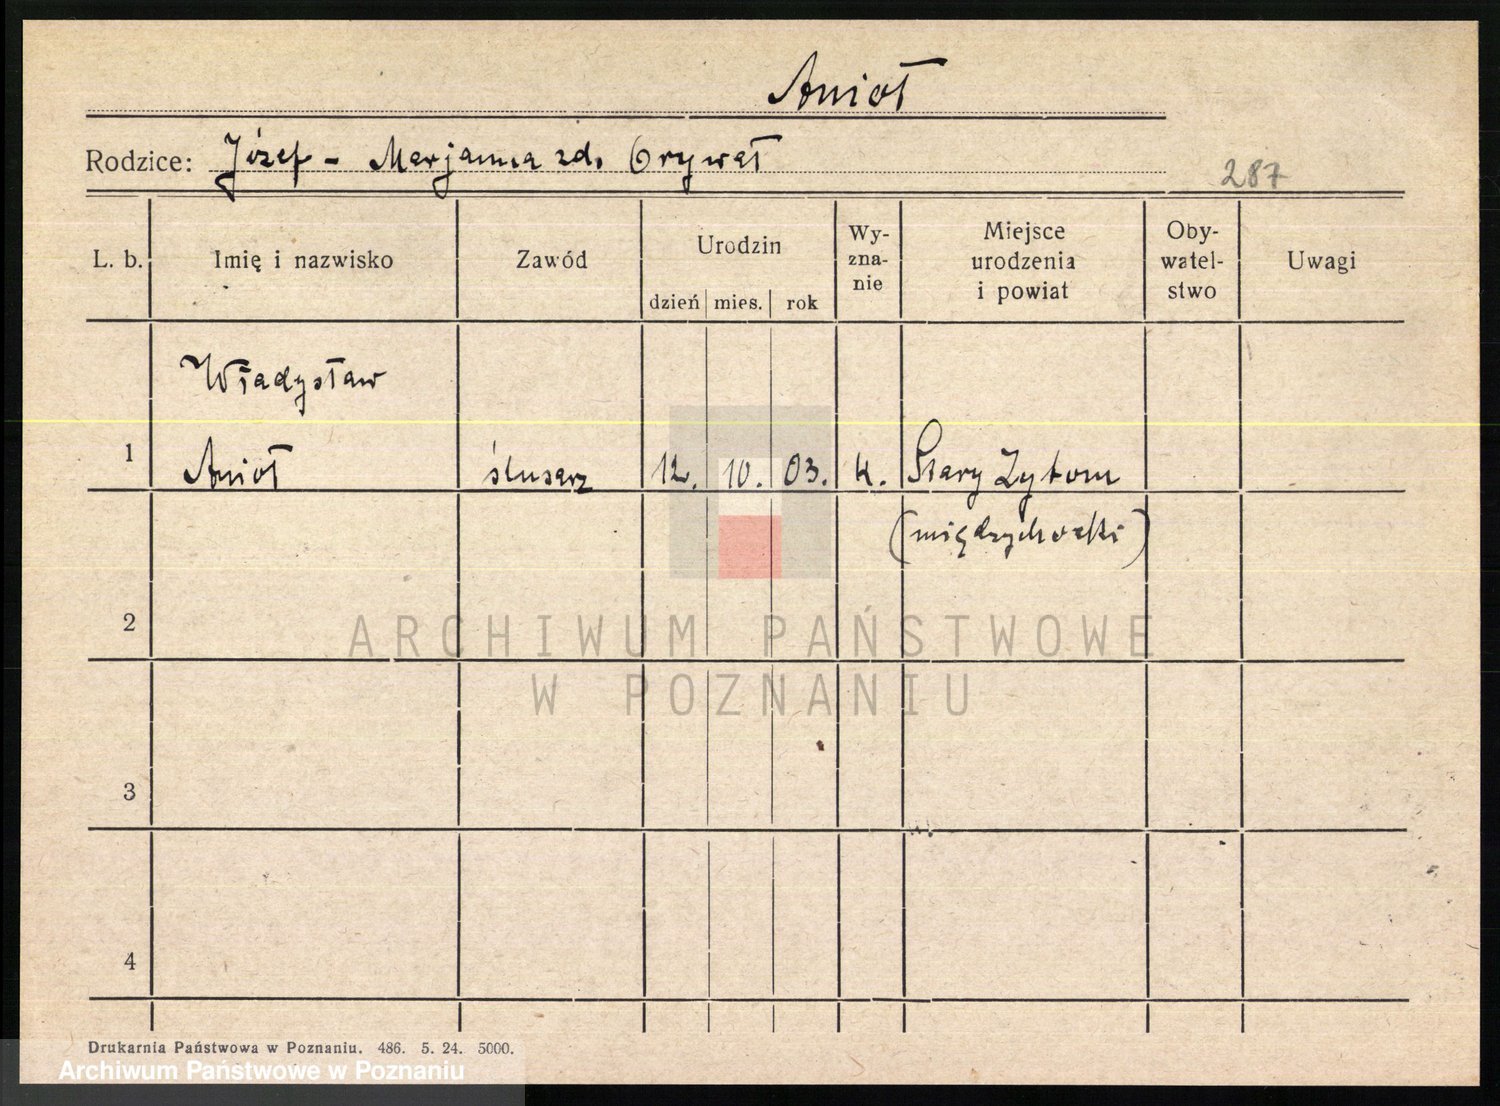 Anioł
Rodzice: Józef - Marjanna zd. Grywał
287
L. b. Imię i nazwisko Zawód Urodzin dzień mies. rok Wy-zna-nie Miejsce urodzenia i powiat Oby-watel-stwo Uwagi
Władysław
1 Anioł ślusarz 12. 10. 03. k. Stary Zytom
(międzychodzki)
2
ARCHIWUM PAŃSTWOWE
W POZNANIU
3
4
Drukarnia Państwowa w Poznaniu. 486. 5. 24. 5000.
Archiwum Państwowe w Poznaniu